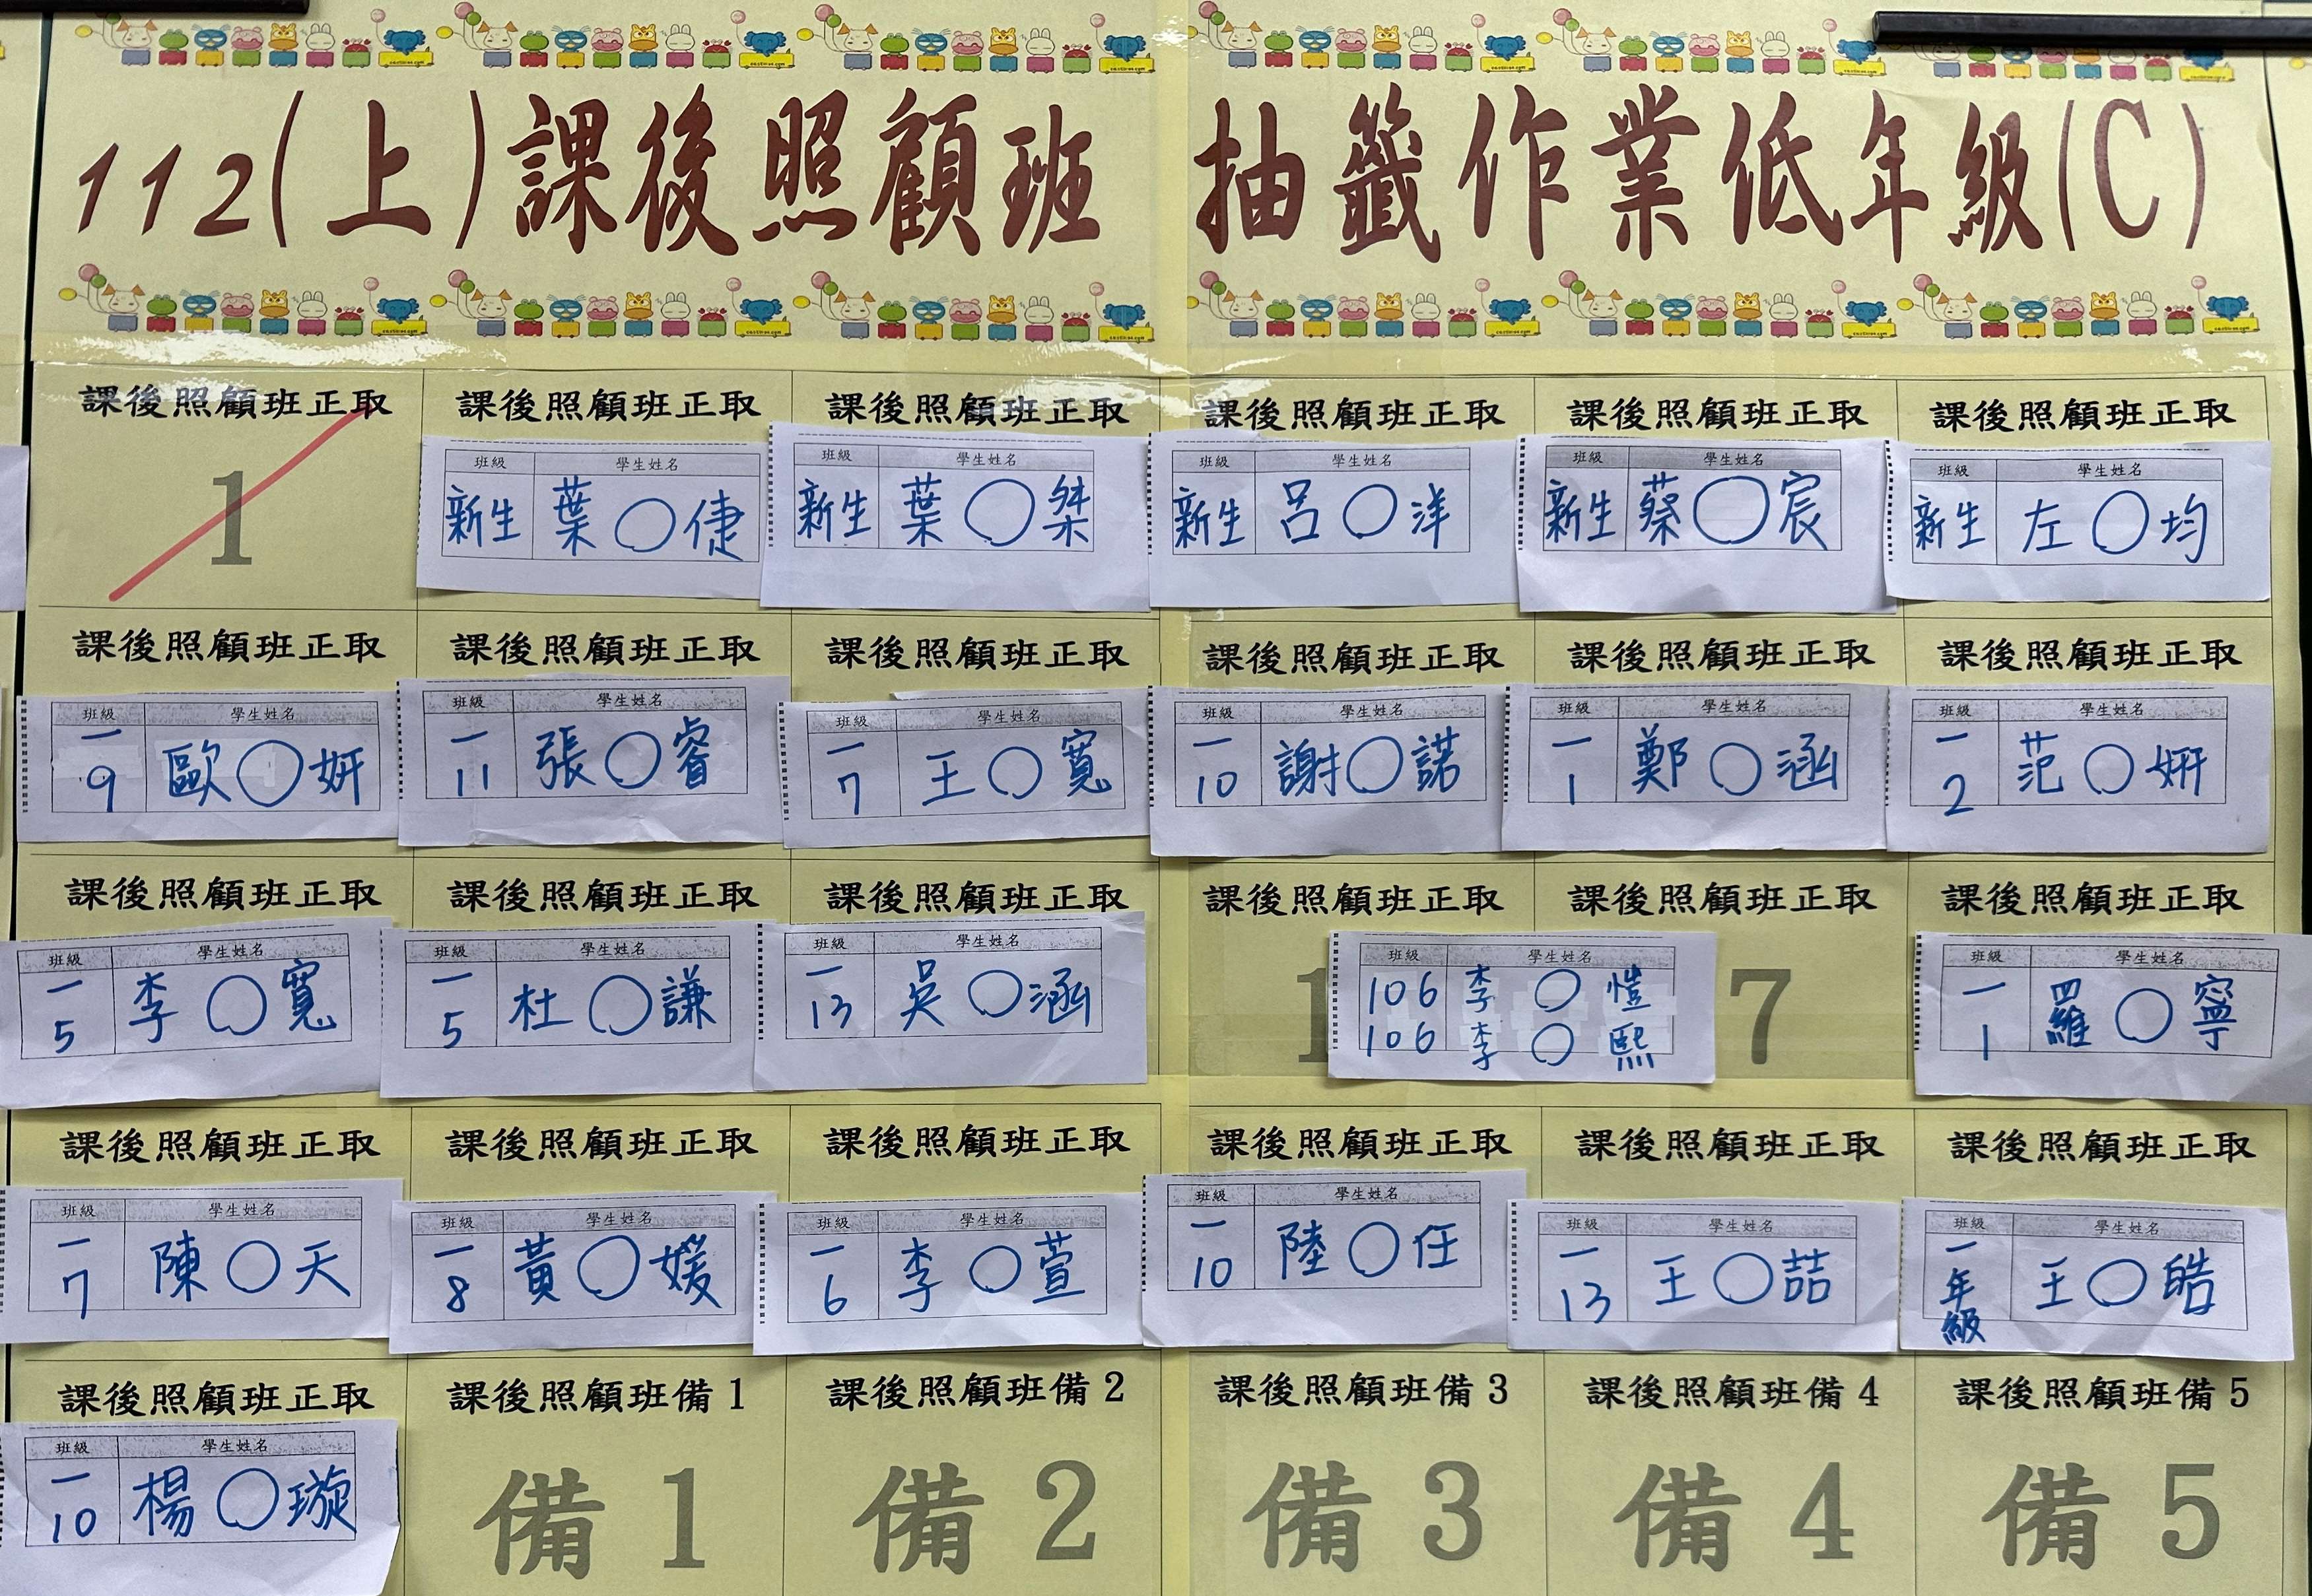 112(上)課後照顧班 抽籤作業低年級(C)
課後照顧班正取
1
課後照顧班正取
班級 學生姓名
新生 葉○倢
課後照顧班正取
班級 學生姓名
新生 葉○桀
課後照顧班正取
班級 學生姓名
新生 呂○洋
課後照顧班正取
班級 學生姓名
新生 蔡○宸
課後照顧班正取
班級 學生姓名
新生 左○均
課後照顧班正取
班級 學生姓名
一9 歐○妍
課後照顧班正取
班級 學生姓名
一11 張○睿
課後照顧班正取
班級 學生姓名
一7 王○寬
課後照顧班正取
班級 學生姓名
一10 謝○諾
課後照顧班正取
班級 學生姓名
一1 鄭○涵
課後照顧班正取
班級 學生姓名
一2 范○妍
課後照顧班正取
班級 學生姓名
一5 李○寬
課後照顧班正取
班級 學生姓名
一5 杜○謙
課後照顧班正取
班級 學生姓名
一13 吳○涵
課後照顧班正取
1
班級 學生姓名
106 李○愷
106 李○熙
課後照顧班正取
7
課後照顧班正取
班級 學生姓名
一1 羅○寧
課後照顧班正取
班級 學生姓名
一7 陳○天
課後照顧班正取
班級 學生姓名
一8 黃○媛
課後照顧班正取
班級 學生姓名
一6 李○萱
課後照顧班正取
班級 學生姓名
一10 陸○任
課後照顧班正取
班級 學生姓名
一13 王○喆
課後照顧班正取
班級 學生姓名
一年級 王○皓
課後照顧班正取
班級 學生姓名
一10 楊○璇
課後照顧班備1
備1
課後照顧班備2
備2
課後照顧班備3
備3
課後照顧班備4
備4
課後照顧班備5
備5